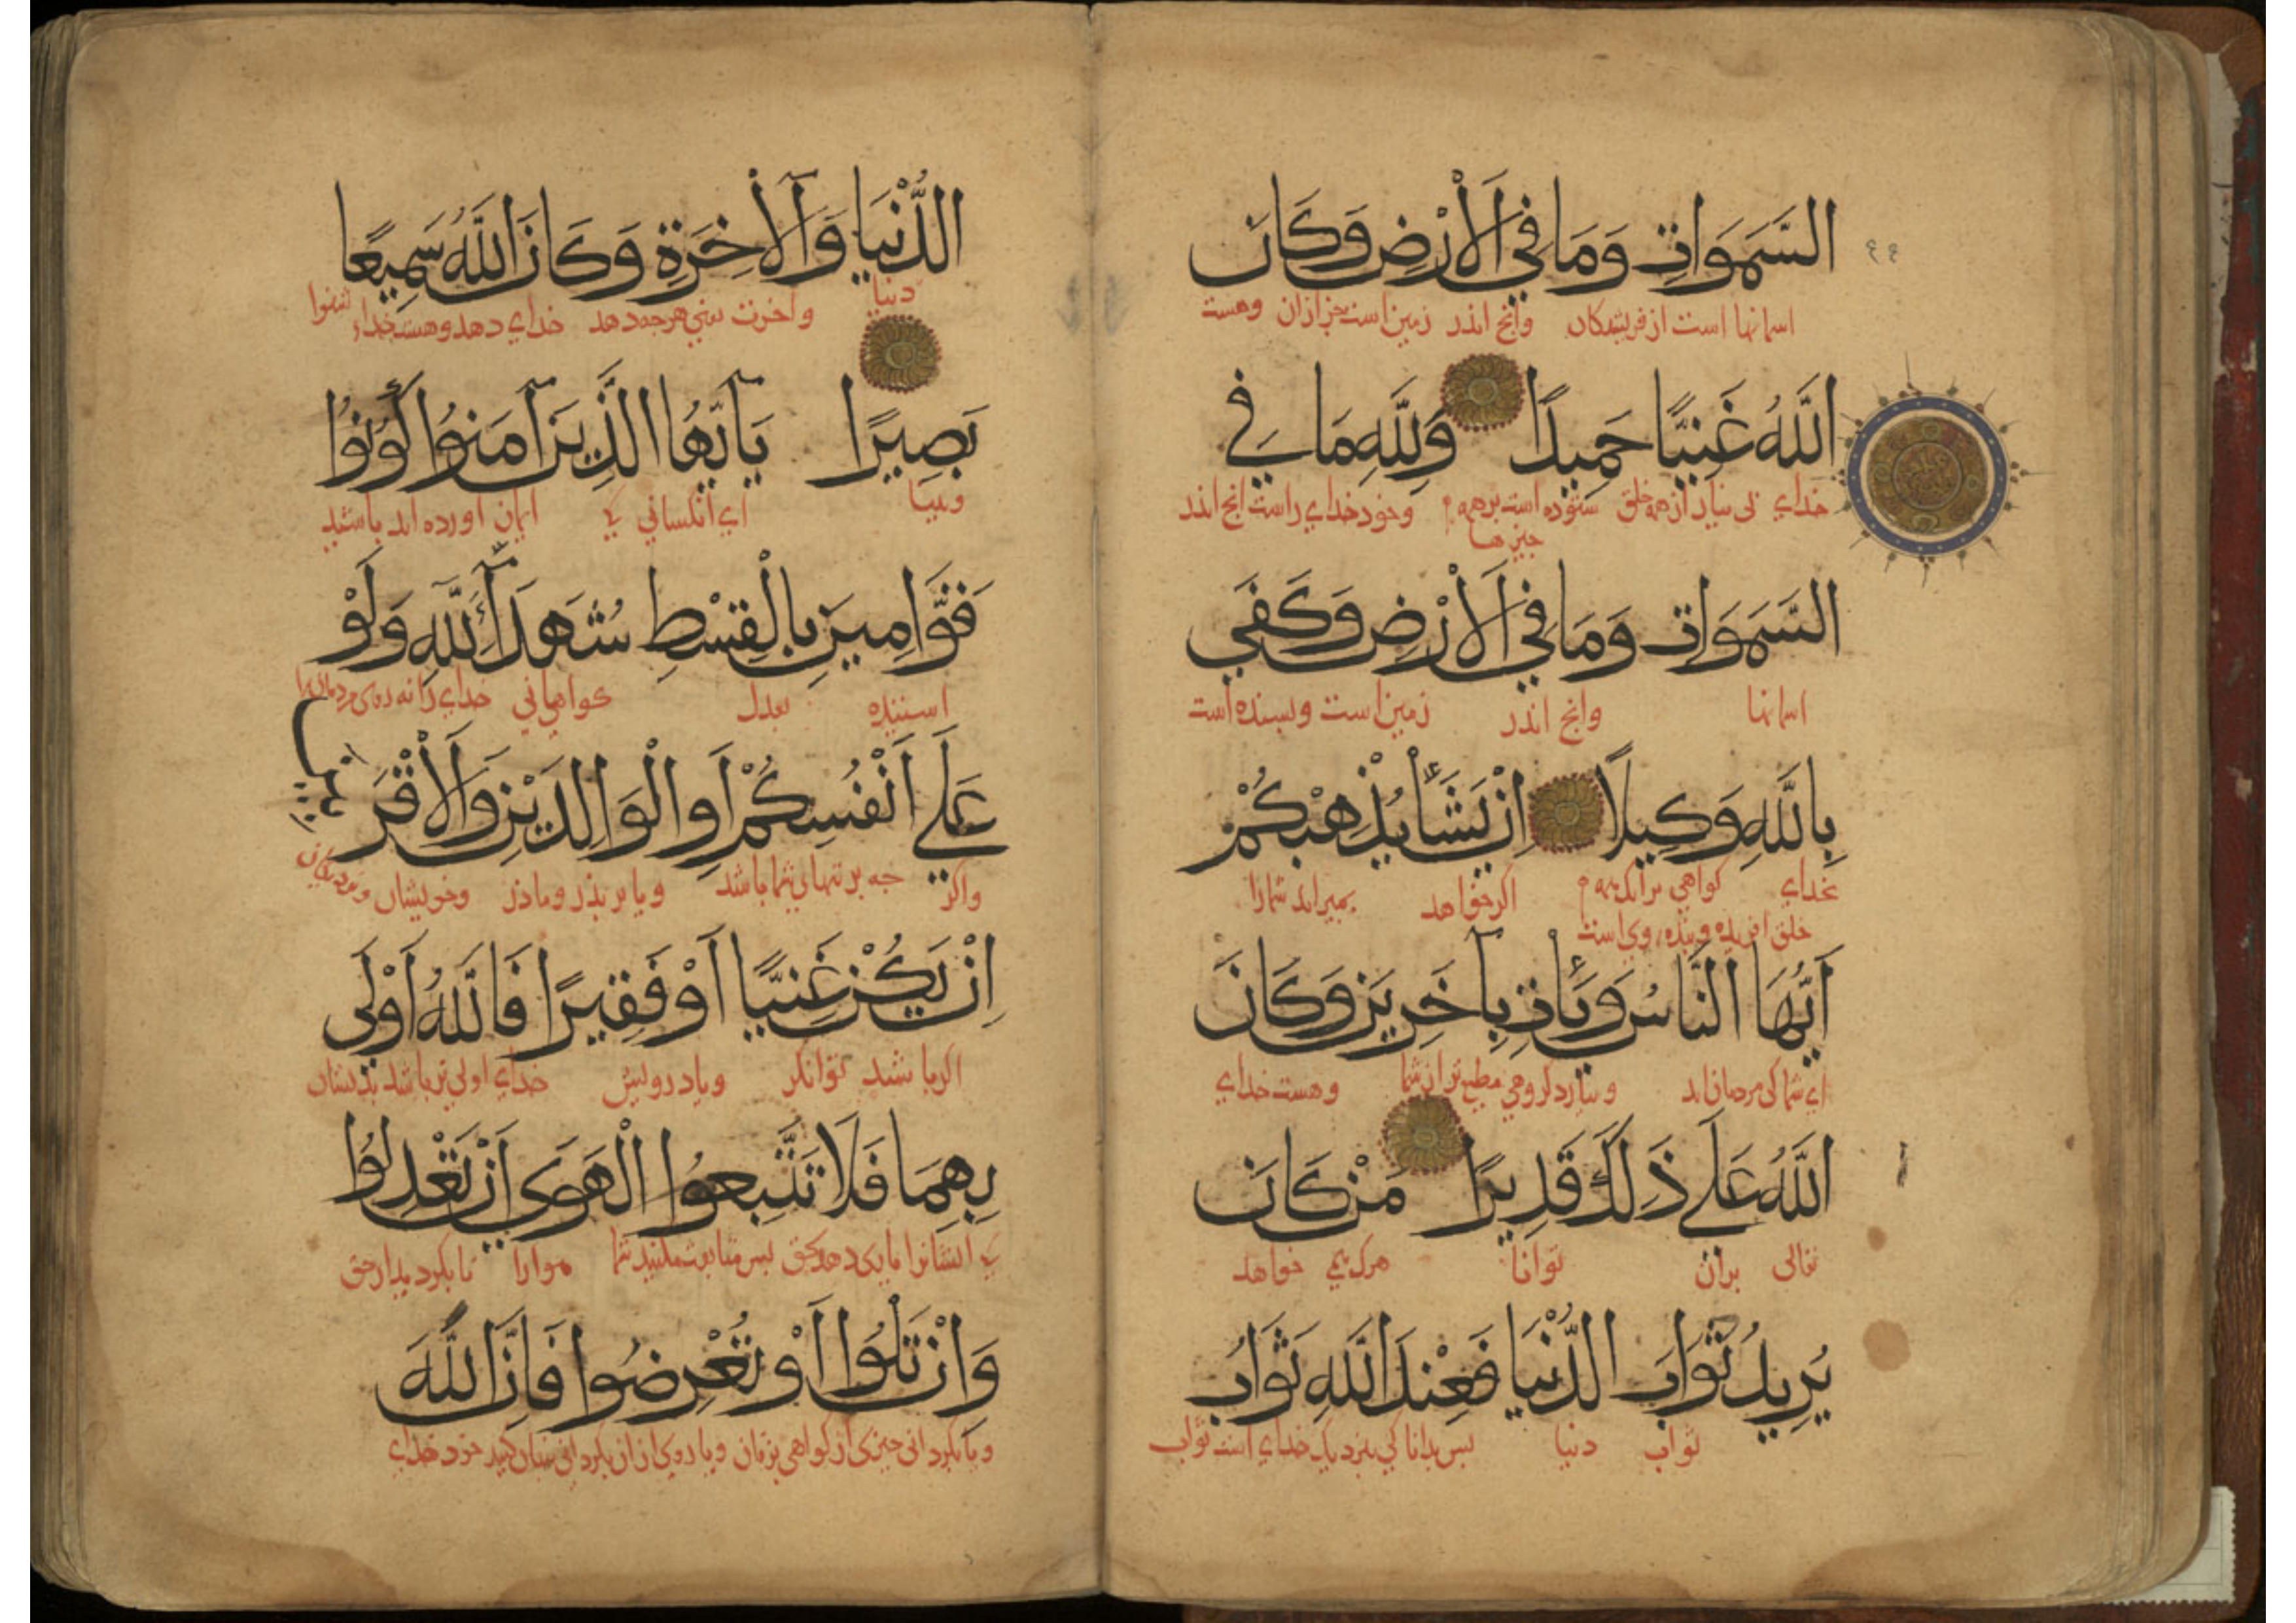 السَّمَوَاتِ وَمَا فِي الْأَرْضِ وَكَانَ
اسمانها است از فریشتکان وانج اندر زمین است جز ازان وهست
اللَّهُ غَنِيًّا حَمِيدًا وَلِلَّهِ مَا فِي
خدای بی نیاز از همه خلق ستوده است برهمه وخود خدای راست انج اندر
جیزها
السَّمَوَاتِ وَمَا فِي الْأَرْضِ وَكَفَى
اسمانها وانج اندر زمین است وبسنده است
بِاللَّهِ وَكِيلًا إِنْ يَشَأْ يُذْهِبْكُمْ
خدای کواهی برانک همه اکر خواهد بمیراند شمارا
خلق افریده وبنده وی است
أَيُّهَا النَّاسُ وَيَأْتِ بِآخَرِينَ وَكَانَ
ای شما کی مردمان اند وبیارد کروهی مطیع تر از شما وهست خدای
اللَّهُ عَلَى ذَلِكَ قَدِيرًا مَنْ كَانَ
تعالی بران توانا هرک می خواهد
يُرِيدُ ثَوَابَ الدُّنْيَا فَعِنْدَ اللَّهِ ثَوَابُ
ثواب دنیا بس بدانا کی بنزدیک خدای است ثواب
الدُّنْيَا وَالْآخِرَةِ وَكَانَ اللَّهُ سَمِيعًا
دنیا واخرت یعنی هرجه دهد خدای دهد وهست خدای شنوا
بَصِيرًا يَا أَيُّهَا الَّذِينَ آمَنُوا كُونُوا
وبینا ای انکسانی کی ایمان اورده اند باشید
قَوَّامِينَ بِالْقِسْطِ شُهَدَاءَ لِلَّهِ وَلَوْ
استنده بعدل کواهانی خدای را نه
عَلَى أَنْفُسِكُمْ أَوِ الْوَالِدَيْنِ وَالْأَقْرَبِينَ
واکر جه بر تنهای شما باشد ویا بر بذر وماذر وخویشان
إِنْ يَكُنْ غَنِيًّا أَوْ فَقِيرًا فَاللَّهُ أَوْلَى
اکر باشد توانکر ویا درویش خدای اولی تر باشد بدیشان
بِهِمَا فَلَا تَتَّبِعُوا الْهَوَى أَنْ تَعْدِلُوا
کی ایشانرا بس متابعت مکنید شما هوارا تا بکردید از حق
وَإِنْ تَلْوُوا أَوْ تُعْرِضُوا فَإِنَّ اللَّهَ
ویا بکردانی جیزی از کواهی بزفان ویا روی ازان بکردانی خود خدای